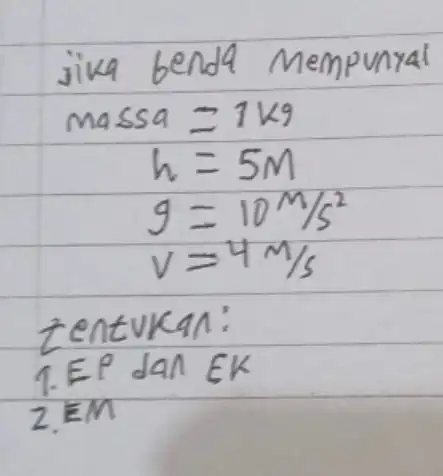 jika benda mempunyai
massa = 1 kg
h = 5 M
g = 10 M/s²
v = 4 M/s
tentukan:
1. EP dan EK
2. EM